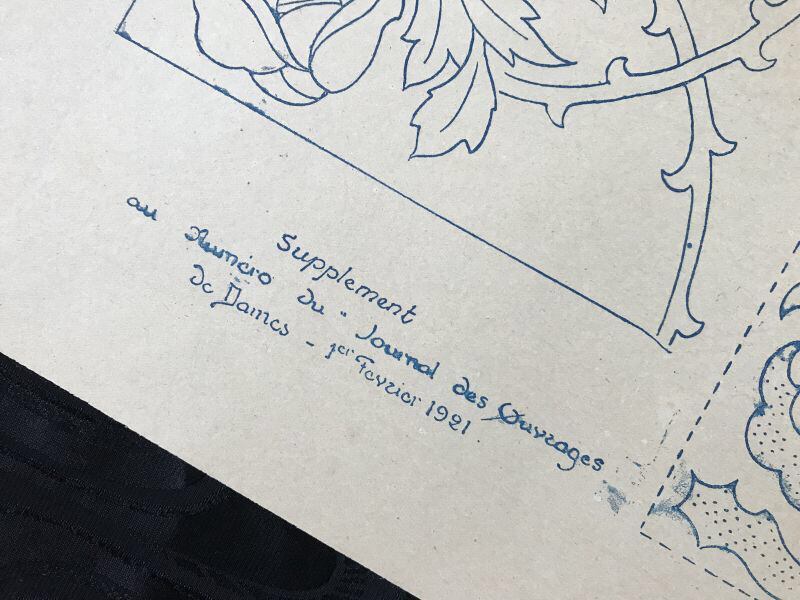 Supplement
au Numéro du " Journal des Ouvrages
de Dames - 1er Fevrier 1921.